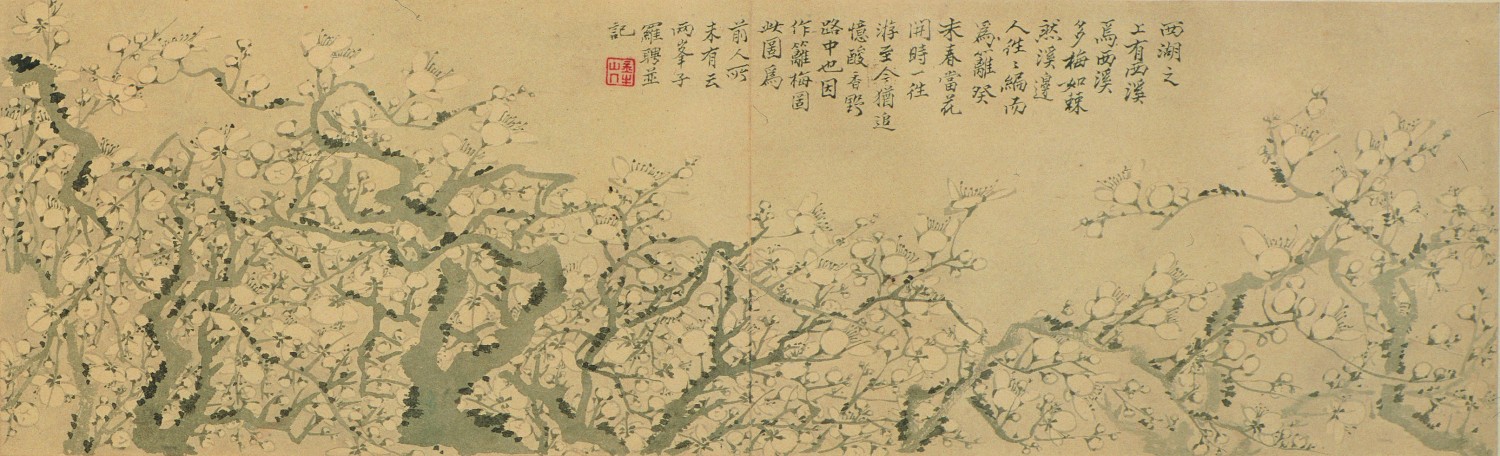 西湖之
上有西溪
焉西溪
多梅如棘
然溪邊
人往〻編而
爲籬癸
未春當花
開時一往
游至今猶追
憶酸香野
路中也因
作籬梅圖
此圖爲
前人所
未有云
兩峯子
羅聘並
記